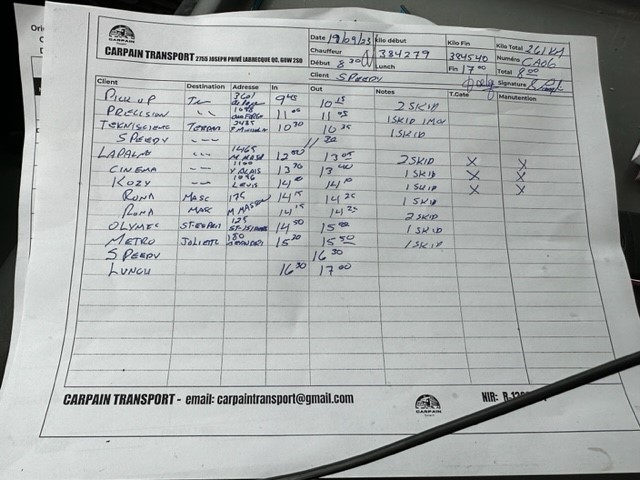 CARPAIN
CARPAIN TRANSPORT 2755 JOSEPH PRIVÉ LABRECQUE QC. G0W 2S0
Date 19/09/23 Kilo début Kilo Fin Kilo Total 261 KM
Chauffeur 384279 384540 Numéro CA06
Début 8 30 Lunch Fin 17 00 Total 8 00
Client SPEEDY Signature
Client Destination Adresse In Out Notes T.Gate Manutention
PICK UP 3601 9 45 10 15 2 SKID
PRECISION 11 00 11 25 1 SKID
TEKNISCIENCE TERREB 10 30 10 35 1 SKID
SPEEDY 11 30
LAPALME 1465 12 13 05 2 SKID X X
CINEMA 1100 13 40 1 SKID X X
KOZY LEVIS 14 14 10 1 SKID X X
RONA MASC 175 14 15 14 25 1 SKID
RONA MASC M MASSON 14 15 14 25 2 SKID
OLYMEL ST-ESPRIT 125 14 50 15 1 SKID
METRO JOLIETTE 180 15 20 15 50 1 SKID
SPEEDY 16 30
LUNCH 16 30 17 00
CARPAIN TRANSPORT - email: carpaintransport@gmail.com
CARPAIN
NIR: